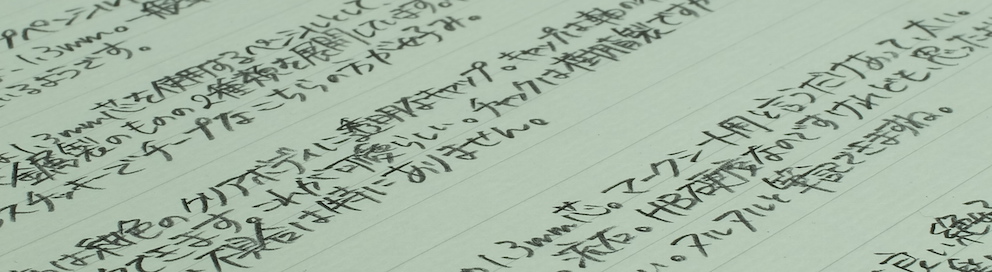 プペンシル
1.3mm。一般
るようです。
1.3mm芯を使用するペンシルとして、
金属製のもの2種類を展開しています。
スチッキーでチープなこちらの方が好み。
は紺色のクリアボディに透明なキャップ。キャップは軸の
できます。これが可愛らしい。チャックは樹脂製ですが
不具合は特にありません。
1.3mm芯。マークシート用と言うだけあって、
来た。HB硬度なのですけれども思った
い。ヌルヌルと筆記できますね。